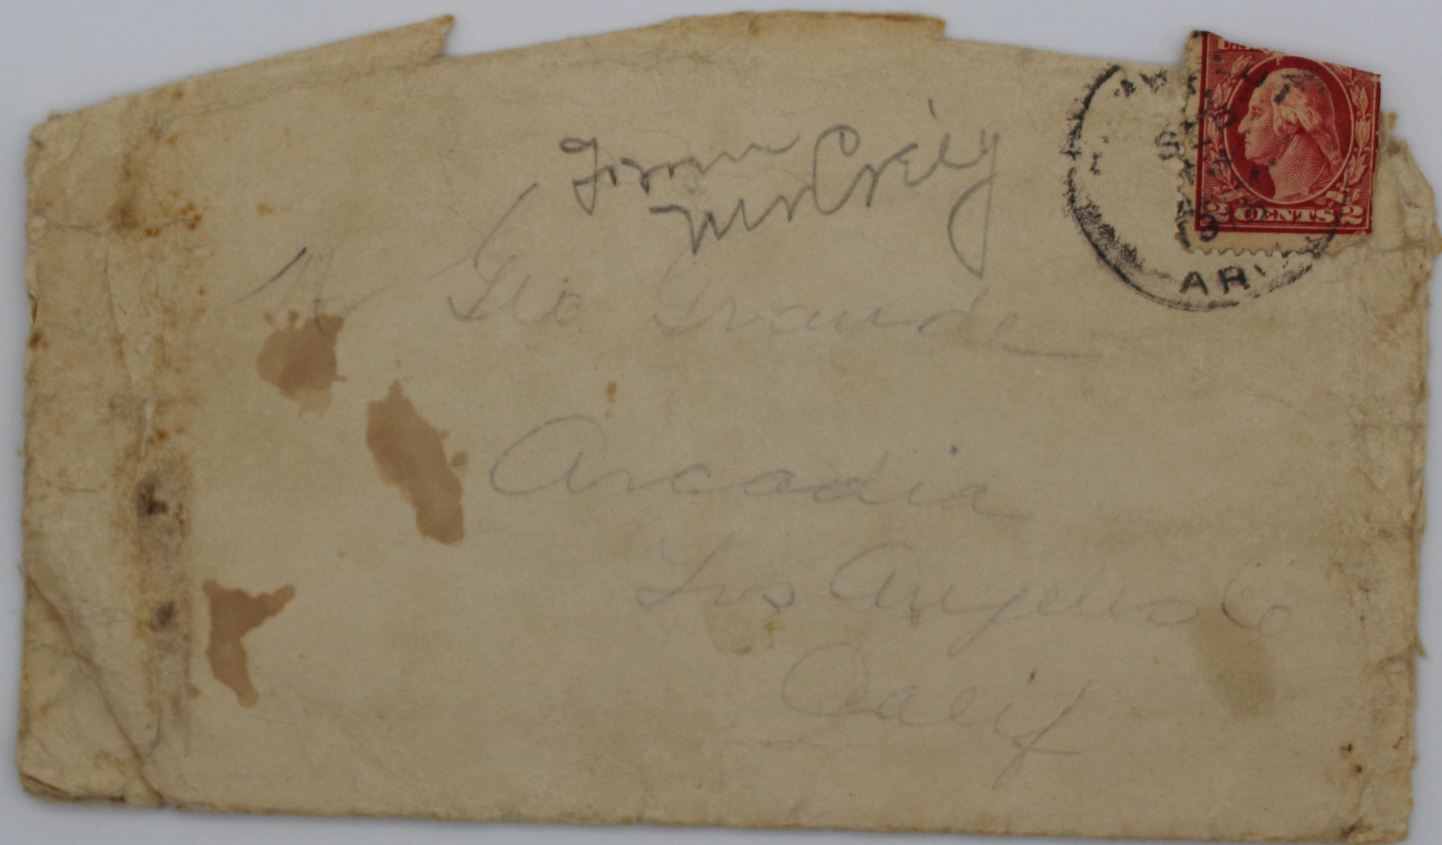 From
Mr Geo Grande
Arcadia
Los Angeles Co
Calif
U.S.
2 CENTS 2